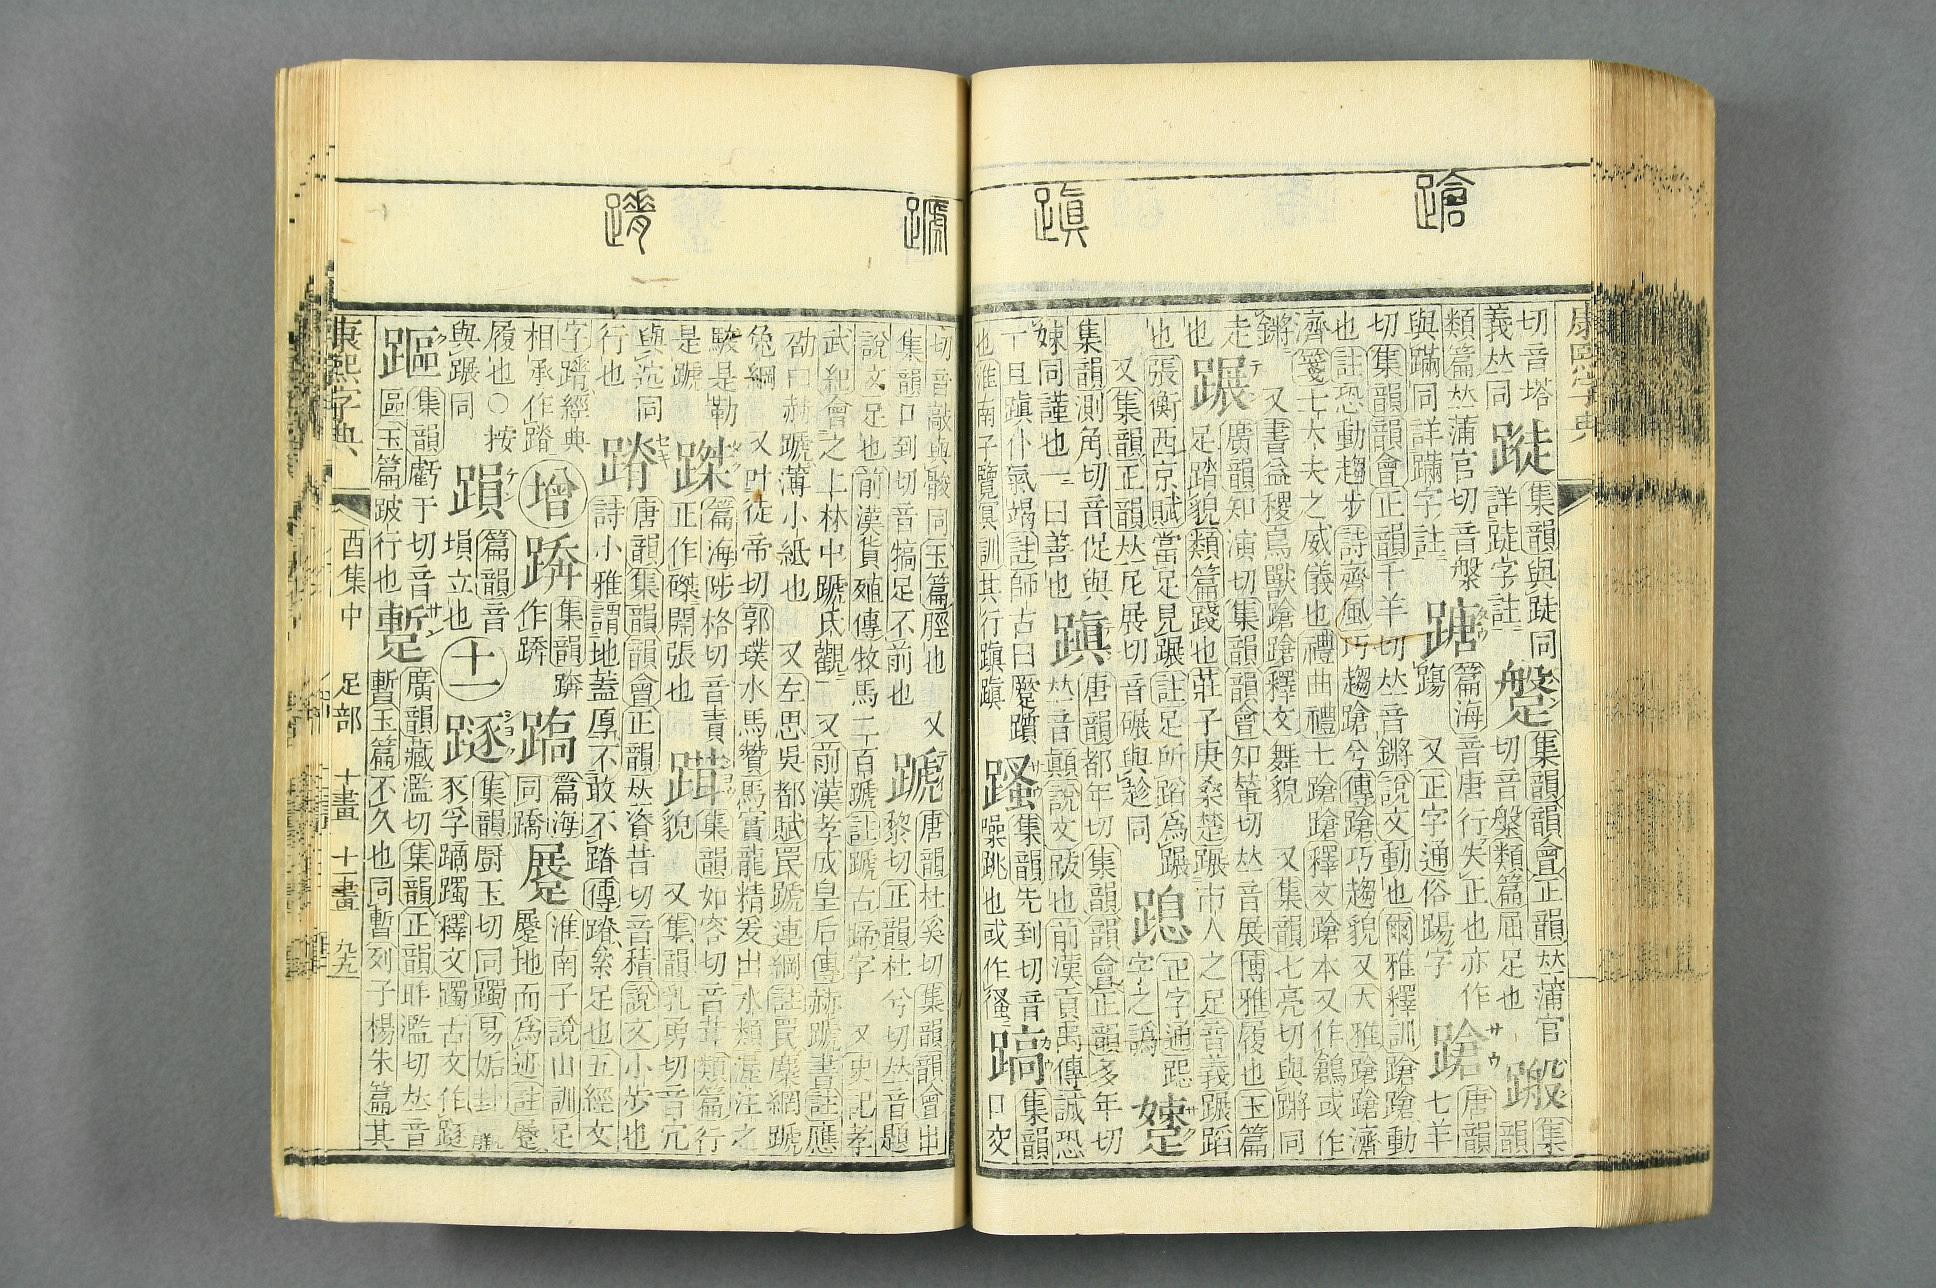 蹌
蹎
康熙字典
切音塔
義𠀤同
集韻與跿同
詳跿字註
集韻韻會正韻𠀤蒲官
切音槃類篇屈足也
集韻
類篇𠀤蒲官切音槃
與蹣同詳蹣字註
篇海音唐行失正也亦作
踼 又正字通俗踼字
蹌
唐韻
七羊
切集韻韻會正韻千羊切𠀤音鏘說文動也爾雅釋訓蹌蹌動
也註恐動趨步詩齊風巧趨蹌兮傳蹌巧趨貌又大雅蹌蹌濟
濟箋士大夫之威儀也禮曲禮士蹌蹌釋文蹌本又作鶬或作
鏘 又書益稷鳥獸蹌蹌釋文舞貌 又集韻七亮切與蹡同
走
也
蹍
廣韻知演切集韻韻會知輦切𠀤音展博雅履也玉篇
足踏貌類篇踐也莊子庚桑楚蹍市人之足音義蹍蹈
也張衡西京賦當足見蹍註足所蹈爲蹍
又集韻正韻𠀤尼展切音碾與趁同
正字通
字之譌
集韻測角切音促與
娕同謹也一曰善也
蹎
唐韻都年切集韻韻會正韻多年切
𠀤音顚說文跋也前漢貢禹傳誠恐
一旦蹎仆氣竭註師古曰蹷躓
也淮南子覽冥訓其行蹎蹎
集韻先到切音
噪跳也或作
集韻
口交
蹏
蹐
切音敲與骹同玉篇脛也 又
集韻口到切音犒足不前也
蹏
唐韻杜奚切集韻韻會
黎切正韻杜兮切𠀤音題
說文足也前漢貨殖傳牧馬二百蹏註蹏古蹄字 又史記孝
武紀會之上林中蹏氏觀 又前漢孝成皇后傳赫蹏書註應
劭曰赫蹏薄小紙也 又左思吳都賦罠蹏連網註罠麋網蹏
兔網 又叶徒帝切郭璞水馬贊馬實龍精爰出水類渥洼之
駿是勒
是蹏
篇海陟格切音責
正作磔開張也
集韻如容切音茸類篇行
貌 又集韻乳勇切音宂
行也
蹐
唐韻集韻韻會正韻𠀤資昔切音積說文小步也
詩小雅謂地蓋厚不敢不蹐傳蹐絫足也五經文
字蹐經典
相承作踖
增
集韻
篇海
同蹻
淮南子說山訓足
地而爲迹註
履也〇按
與蹍同
篇韻音
塤立也
十一
集韻厨玉切同躅易姤卦羸
豕孚蹢躅釋文躅古文作
集韻虧于切音
區玉篇跛行也
蹔
廣韻藏濫切集韻正韻昨濫切𠀤音
暫玉篇不久也同暫列子楊朱篇其
康熙字典 酉集中 足部 十畫 十一畫 九九